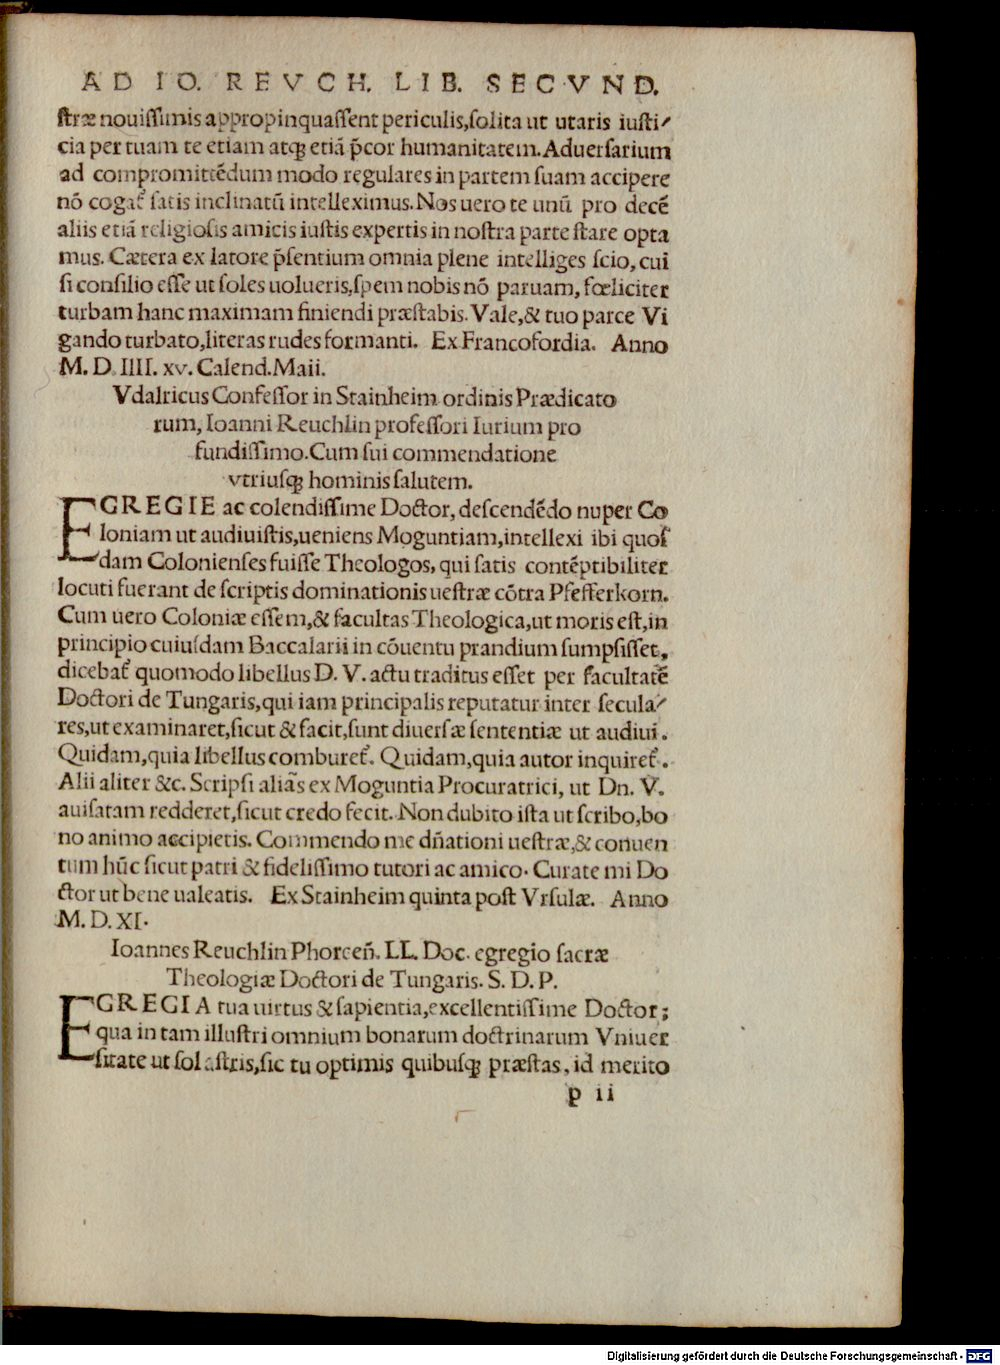 AD IO. REVCH. LIB. SECVND.
stræ nouissimis appropinquassent periculis, solita ut utaris iusti⸗
cia per tuam te etiam atqꝫ etiã p̃cor humanitatem. Aduersarium
ad compromittẽdum modo regulares in partem suam accipere
nõ cogat᷑ satis inclinatũ intelleximus. Nos uero te unũ pro decẽ
aliis etiã religiosis amicis iustis expertis in nostra parte stare opta
mus. Cætera ex latore p̃sentium omnia plene intelliges scio, cui
si consilio esse ut soles uolueris, spem nobis nõ paruam, fœliciter
turbam hanc maximam finiendi præstabis. Vale, & tuo parce Vi
gando turbato, literas rudes formanti. Ex Francofordia. Anno
M. D. IIII. xv. Calend. Maii.
Vdalricus Confessor in Stainheim ordinis Prædicato
rum, Ioanni Reuchlin professori Iurium pro
fundissimo. Cum sui commendatione
vtriusqꝫ hominis salutem.
EGREGIE ac colendissime Doctor, descendẽdo nuper Co
loniam ut audiuistis, ueniens Moguntiam, intellexi ibi quos
dam Colonienses fuisse Theologos, qui satis contẽptibiliter
locuti fuerant de scriptis dominationis uestræ cõtra Pfefferkorn.
Cum uero Coloniæ essem, & facultas Theologica, ut moris est, in
principio cuiusdam Baccalarii in cõuentu prandium sumpsisset,
dicebat᷑ quomodo libellus D. V. actu traditus esset per facultatẽ
Doctori de Tungaris, qui iam principalis reputatur inter secula⸗
res, ut examinaret, sicut & facit, sunt diuersæ sententiæ ut audiui.
Quidam, quia libellus comburet᷑. Quidam, quia autor inquiret᷑.
Alii aliter &c. Scripsi aliãs ex Moguntia Procuratrici, ut Dn. V.
auisatam redderet, sicut credo fecit. Non dubito ista ut scribo, bo
no animo accipietis. Commendo me dñationi uestræ, & conuen
tum hũc sicut patri & fidelissimo tutori ac amico. Curate mi Do
ctor ut bene ualeatis. Ex Stainheim quinta post Vrsulæ. Anno
M. D. XI.
Ioannes Reuchlin Phorceñ. LL. Doc. egregio sacræ
Theologiæ Doctori de Tungaris. S. D. P.
EGREGIA tua uirtus & sapientia, excellentissime Doctor;
qua in tam illustri omnium bonarum doctrinarum Vniuer
sitate ut sol astris, sic tu optimis quibusqꝫ præstas, id merito
p ii
Digitalisierung gefördert durch die Deutsche Forschungsgemeinschaft - DFG